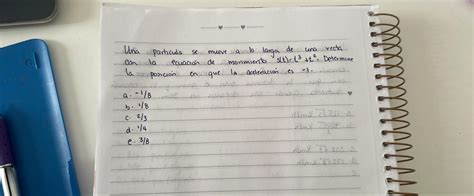 Una particula se mueve a lo largo de una recta
con la ecuación de movimiento s(t)=t³+t². Determine
la posición en que la aceleración es -1.
a. -1/8
b. 1/8
c. 2/3
d. 1/4
e. 3/8